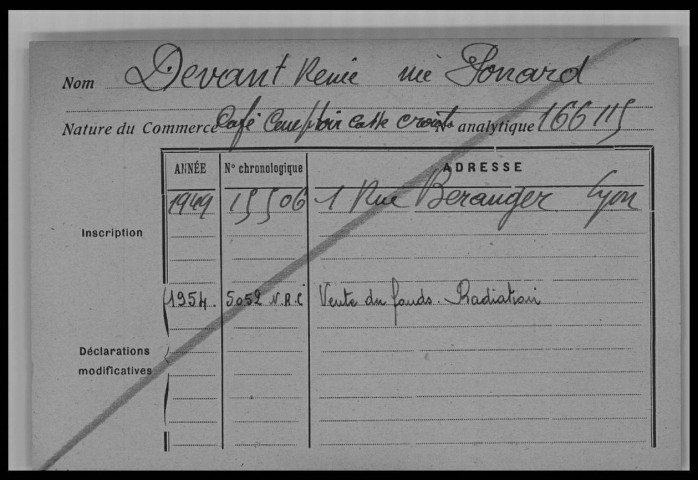 Nom Devant Renée née Ponard
Nature du Commerce Café Comptoir Casse croute Nº analytique 166 115
ANNÉE Nº chronologique ADRESSE
1949 15506 1 Rue Béranger Lyon
Inscription
1954. 5052 N.R.C Vente du fonds. Radiation
Déclarations
modificatives